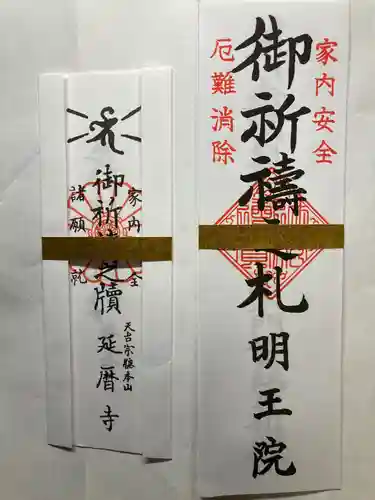 家内安全
御祈禱之札
厄難消除
明王院
家内全
御祈之牘
諸願就
天台宗総本山
延暦寺